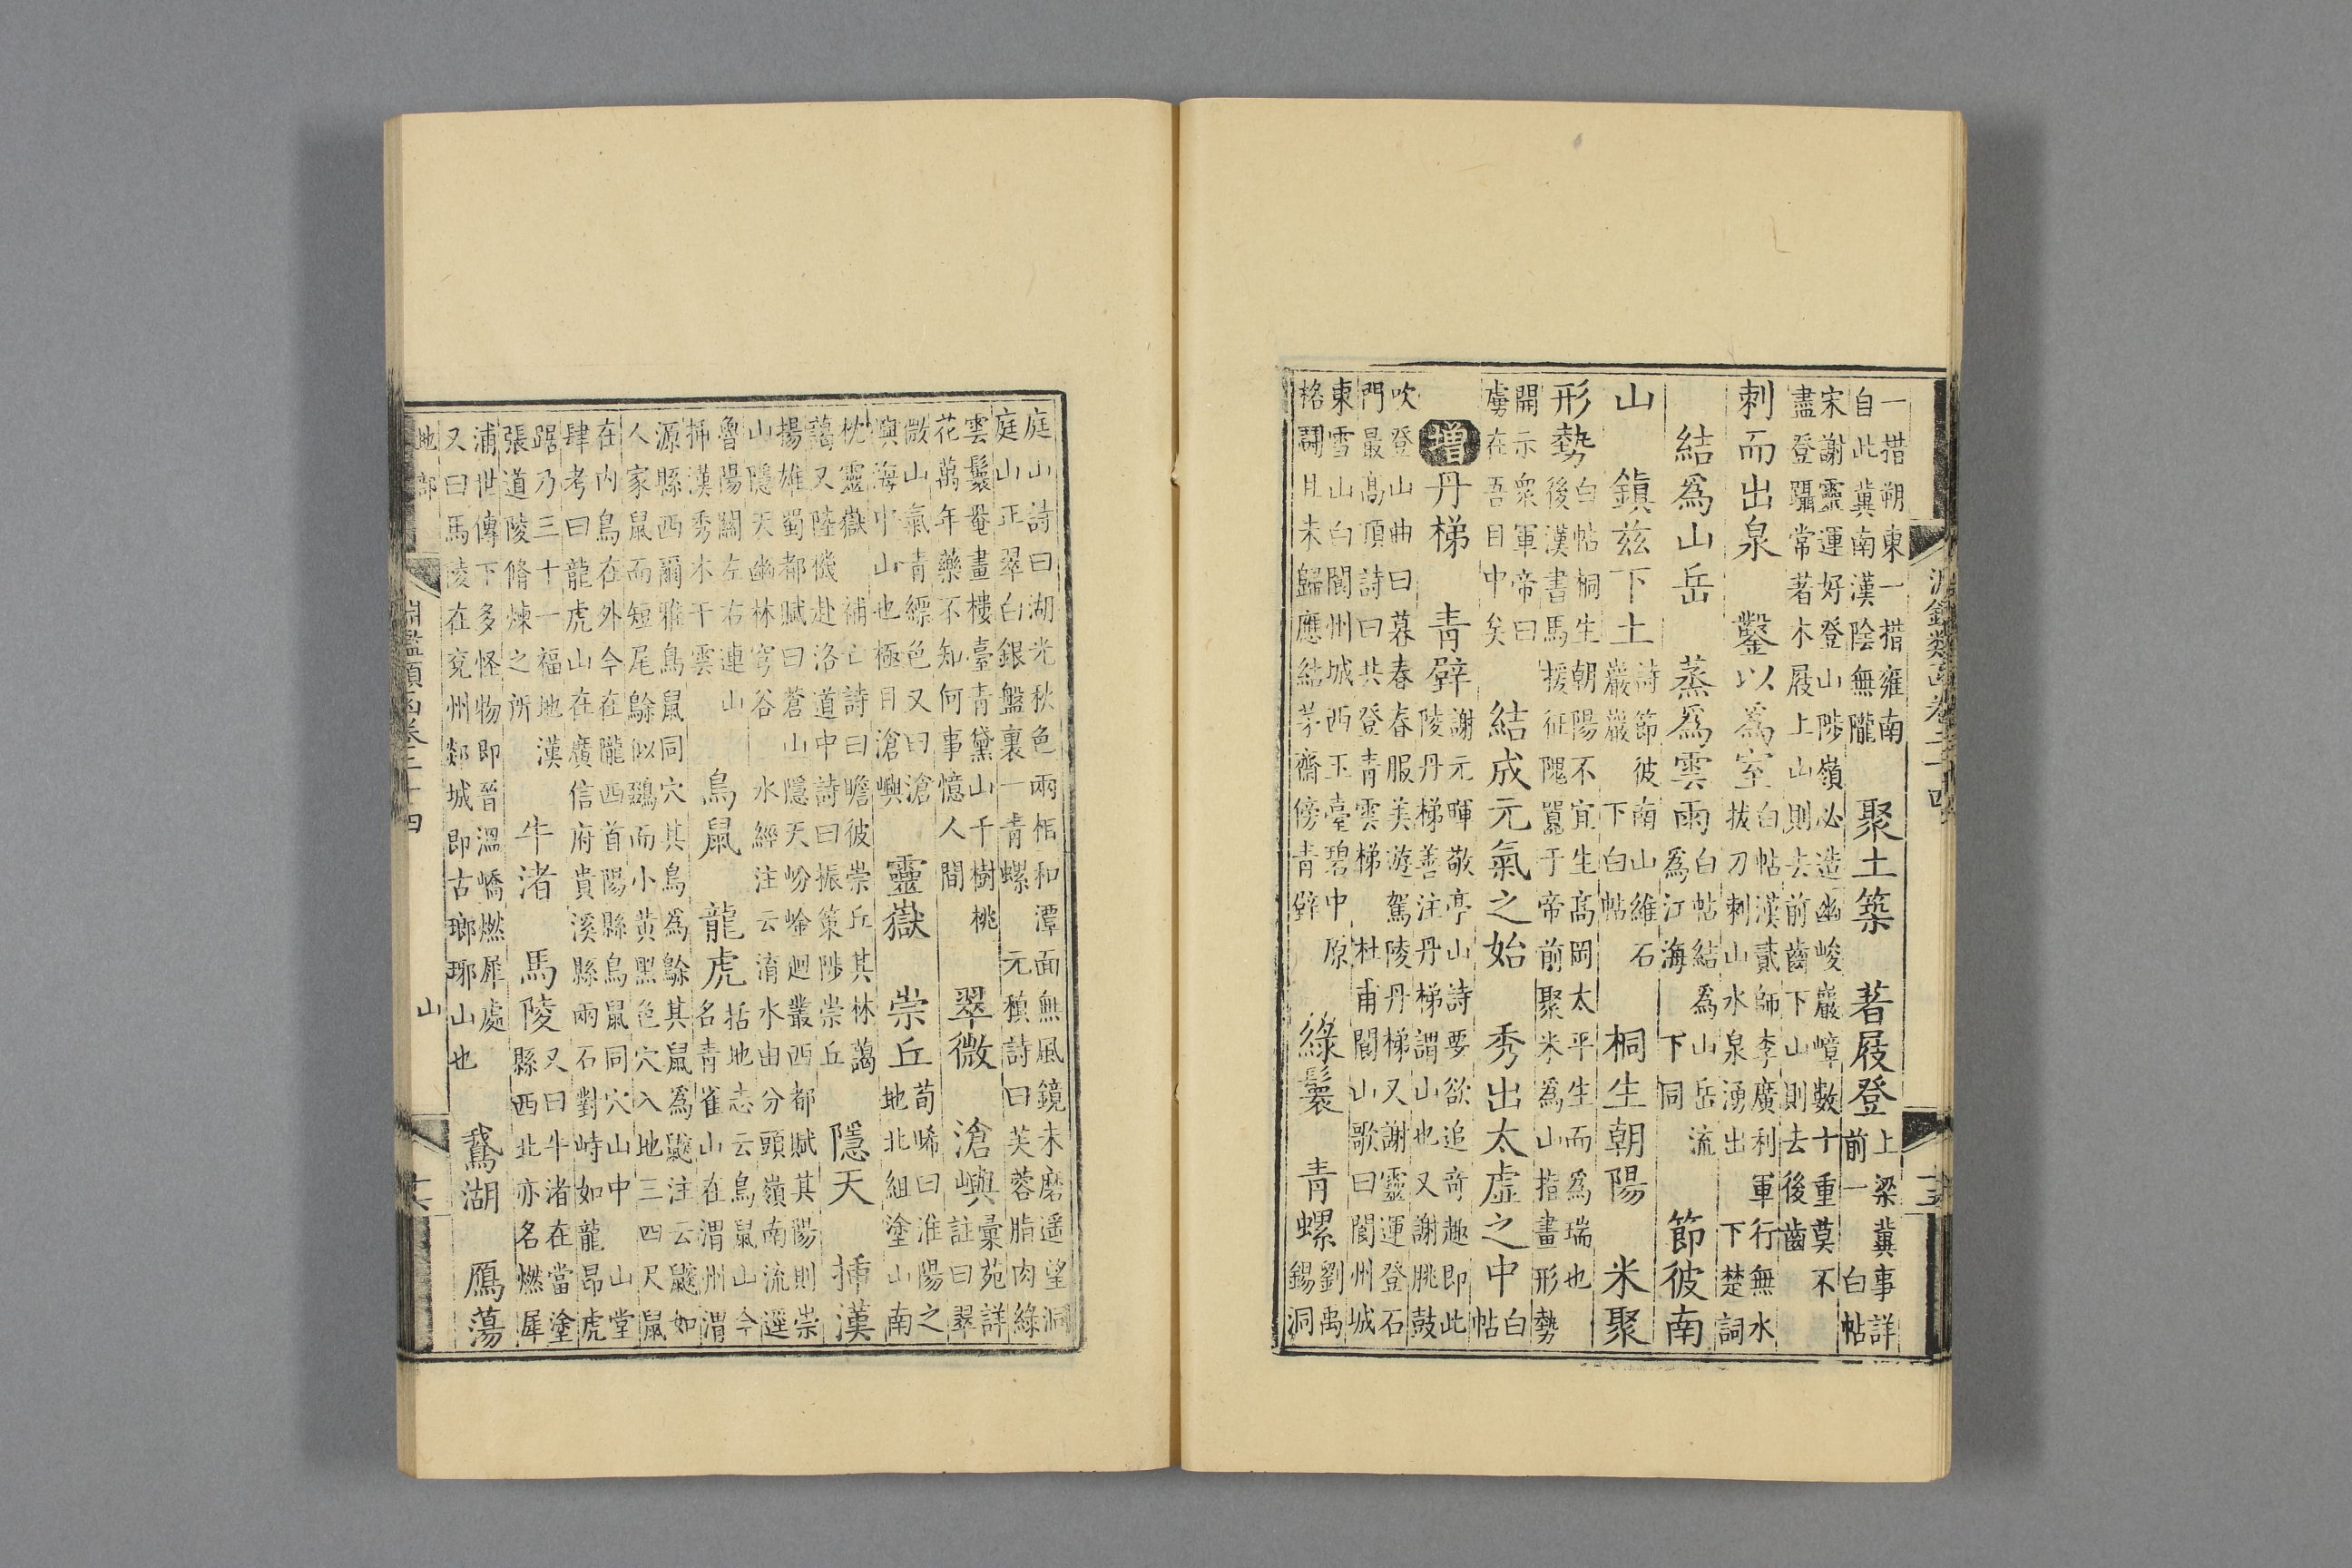 淵鑑類函卷二十四
一措朔東一措雍南
自此冀南漢陰無隴
聚土築 著屐登
上梁冀事詳
前一白帖
宋謝靈運好登山陟嶺必造幽峻巖嶂數十重莫不
盡登躡常著木屐上山則去前齒下山則去後齒
刺而出泉 鑿以爲室
白帖漢貳師李廣利軍行無水
拔刀刺山水泉湧出 下楚詞
結爲山岳 蒸爲雲雨
白帖結爲山岳流
爲江海 下同
節彼南
山 鎮兹下土
詩節彼南山維石
巖巖 下白帖
桐生朝陽 米聚
形勢
白帖桐生朝陽不宜生高岡太平生而爲瑞也
後漢書馬援征隗囂于帝前聚米爲山指畫形勢
開示衆軍帝曰
虜在吾目中矣
結成元氣之始 秀出太虛之中
白
帖
增 丹梯 青壁
謝元暉敬亭山詩要欲追奇趣即此
陵丹梯善注丹梯謂山也又謝朓鼓
吹登山曲曰暮春春服美游駕陵丹梯又謝靈運登石
門最高頂詩曰共登青雲梯 杜甫閬山歌曰閬州城
東雪山白閬州城西玉臺碧中原
格鬭且未歸應結茅齋傍青壁
綠鬟 青螺
劉禹
錫洞
庭山詩曰湖光秋色兩相和潭面無風鏡未磨遥望洞
庭山正翠白銀盤裏一青螺 元稹詩曰芙蓉脂肉綠
雲鬟罨畫樓臺青黛山千樹桃
花萬年藥不知何事憶人間
翠微 滄嶼
彙苑詳
註曰翠
微山氣青縹色又曰滄
嶼海中山也極目滄嶼
靈嶽 崇丘
荀晞曰淮陽之
地北組塗山南
枕靈嶽 補亡詩曰瞻彼崇丘其林藹
藹又陸機赴洛道中詩曰振策陟崇丘
隱天 插漢
揚雄蜀都賦曰蒼山隱天岎崯迴叢西都賦其陽則崇
山隱天幽林穹谷 水經注云淯水由分頭嶺南流逕
魯陽關左右連山
插漢秀木干雲
鳥鼠 龍虎
括地志云鳥鼠山今
名青雀山在渭州渭
源縣西爾雅鳥鼠同穴其鳥爲鵌其鼠爲鼵注云鼵如
人家鼠而短尾鵌似鵽而小黄黑色穴入地三四尺鼠
在内鳥在外今在隴西首陽縣鳥鼠同穴山中 山堂
肆考曰龍虎山在廣信府貴溪縣兩石對峙如龍昂虎
踞乃三十一福地漢
張道陵脩煉之所
牛渚 馬陵
又曰牛渚在當塗
縣西北亦名燃犀
浦世傳下多怪物即晉溫嶠燃犀處
又曰馬陵在兗州郯城即古瑯琊山也
鵞湖 鴈蕩
地部 山
淵鑑類函卷二十四